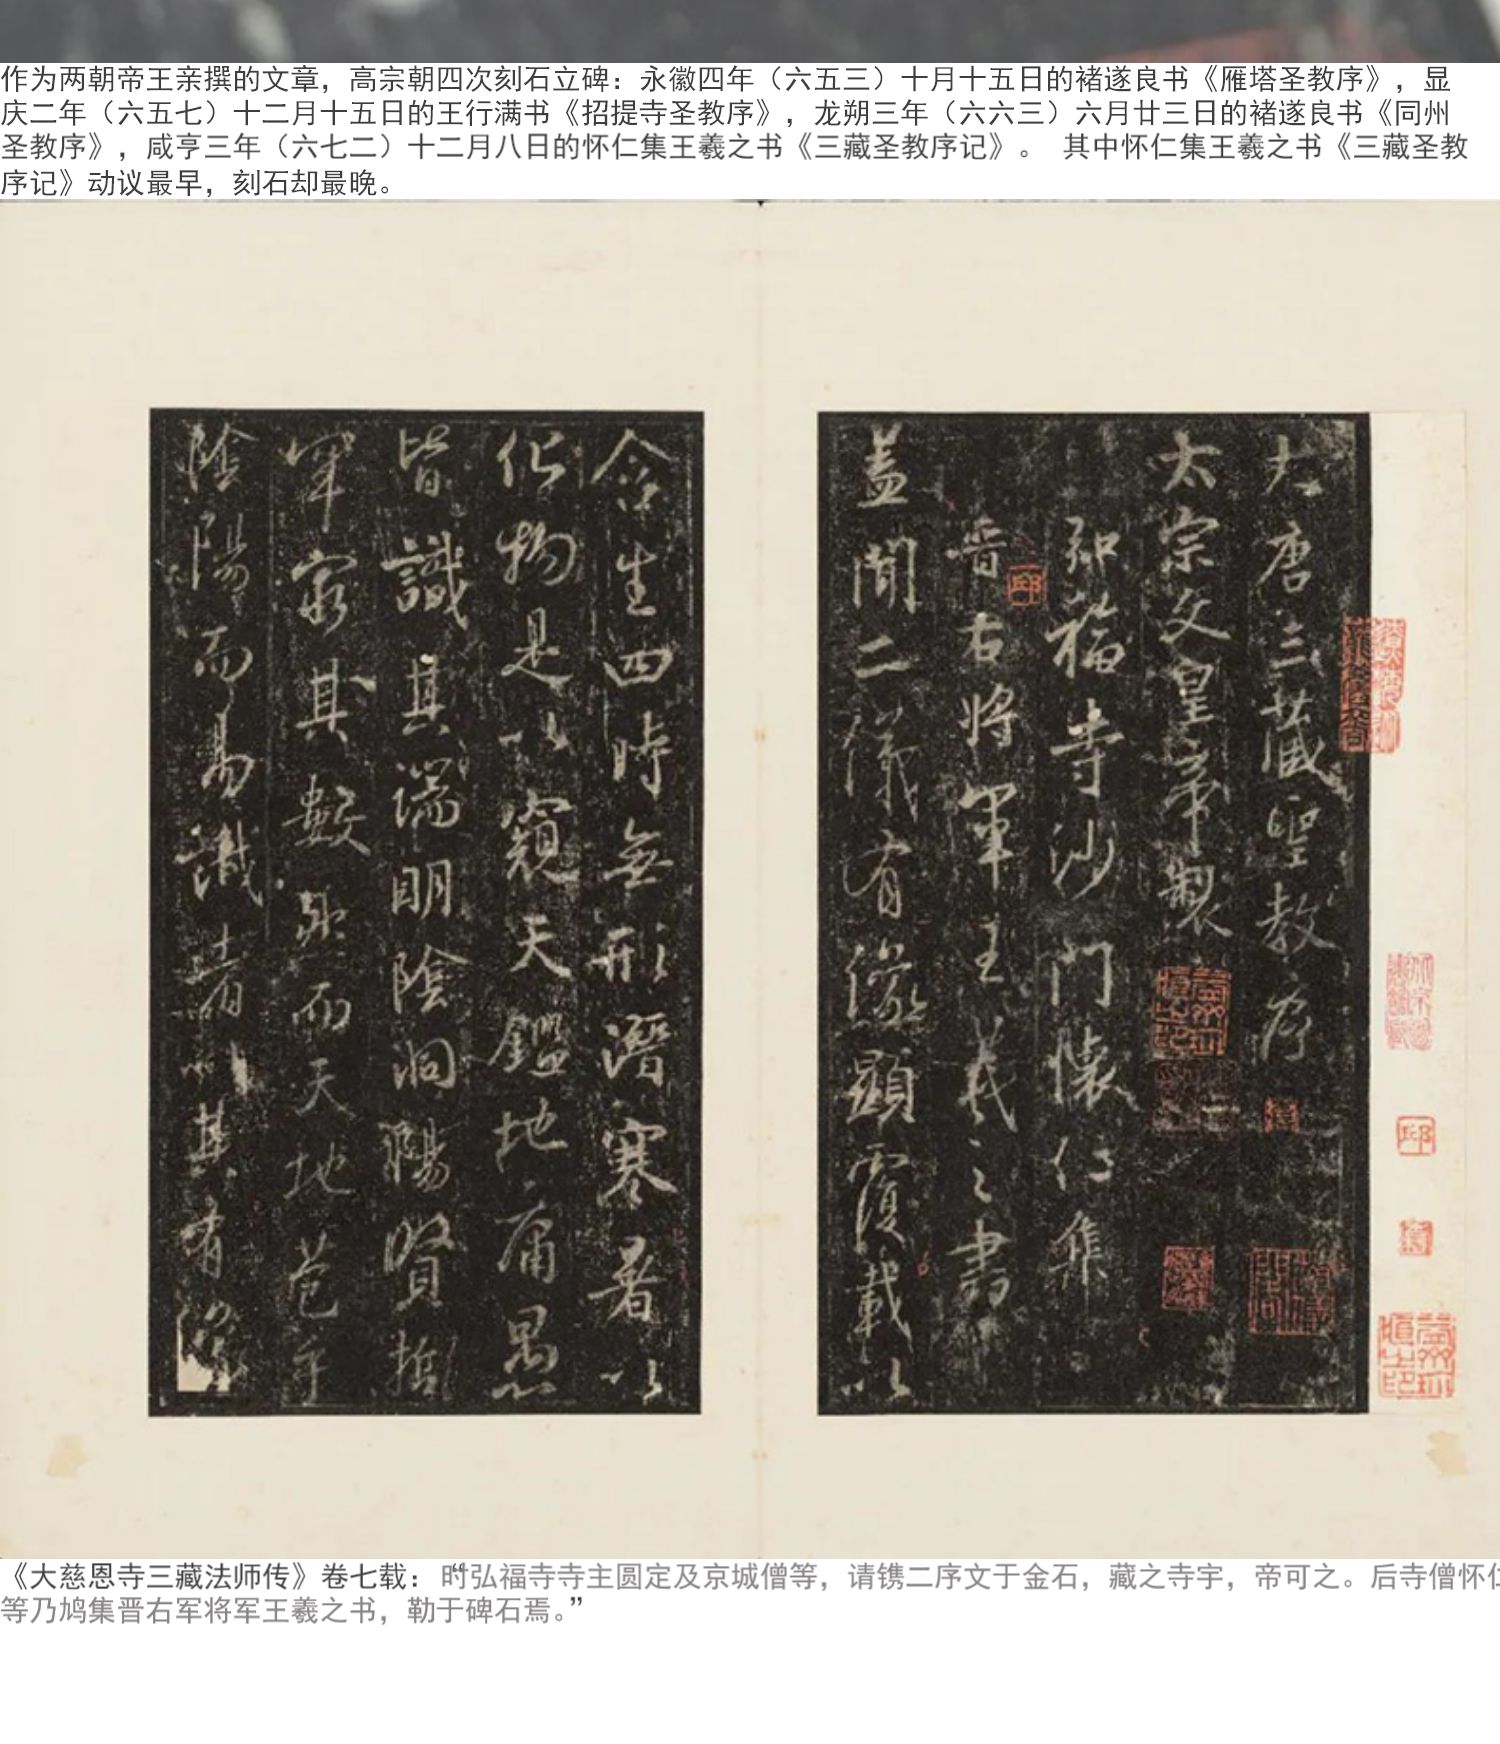 作为两朝帝王亲撰的文章，高宗朝四次刻石立碑：永徽四年（六五三）十月十五日的褚遂良书《雁塔圣教序》，显
庆二年（六五七）十二月十五日的王行满书《招提寺圣教序》，龙朔三年（六六三）六月廿三日的褚遂良书《同州
圣教序》，咸亨三年（六七二）十二月八日的怀仁集王羲之书《三藏圣教序记》。 其中怀仁集王羲之书《三藏圣教
序记》动议最早，刻石却最晚。
大唐三藏聖教序
太宗文皇帝製
弘福寺沙門懷仁集
晋右将軍王羲之書
蓋聞二儀有像顯覆載以
含生四時無形潛寒暑以
化物是以窺天鑑地庸愚
皆識其端明陰洞陽賢哲
罕窮其數然而天地苞乎
陰陽而易識者以其有像
邱
邱
《大慈恩寺三藏法师传》卷七载：“时弘福寺寺主圆定及京城僧等，请镌二序文于金石，藏之寺宇，帝可之。后寺僧怀仁
等乃鸠集晋右军将军王羲之书，勒于碑石焉。”